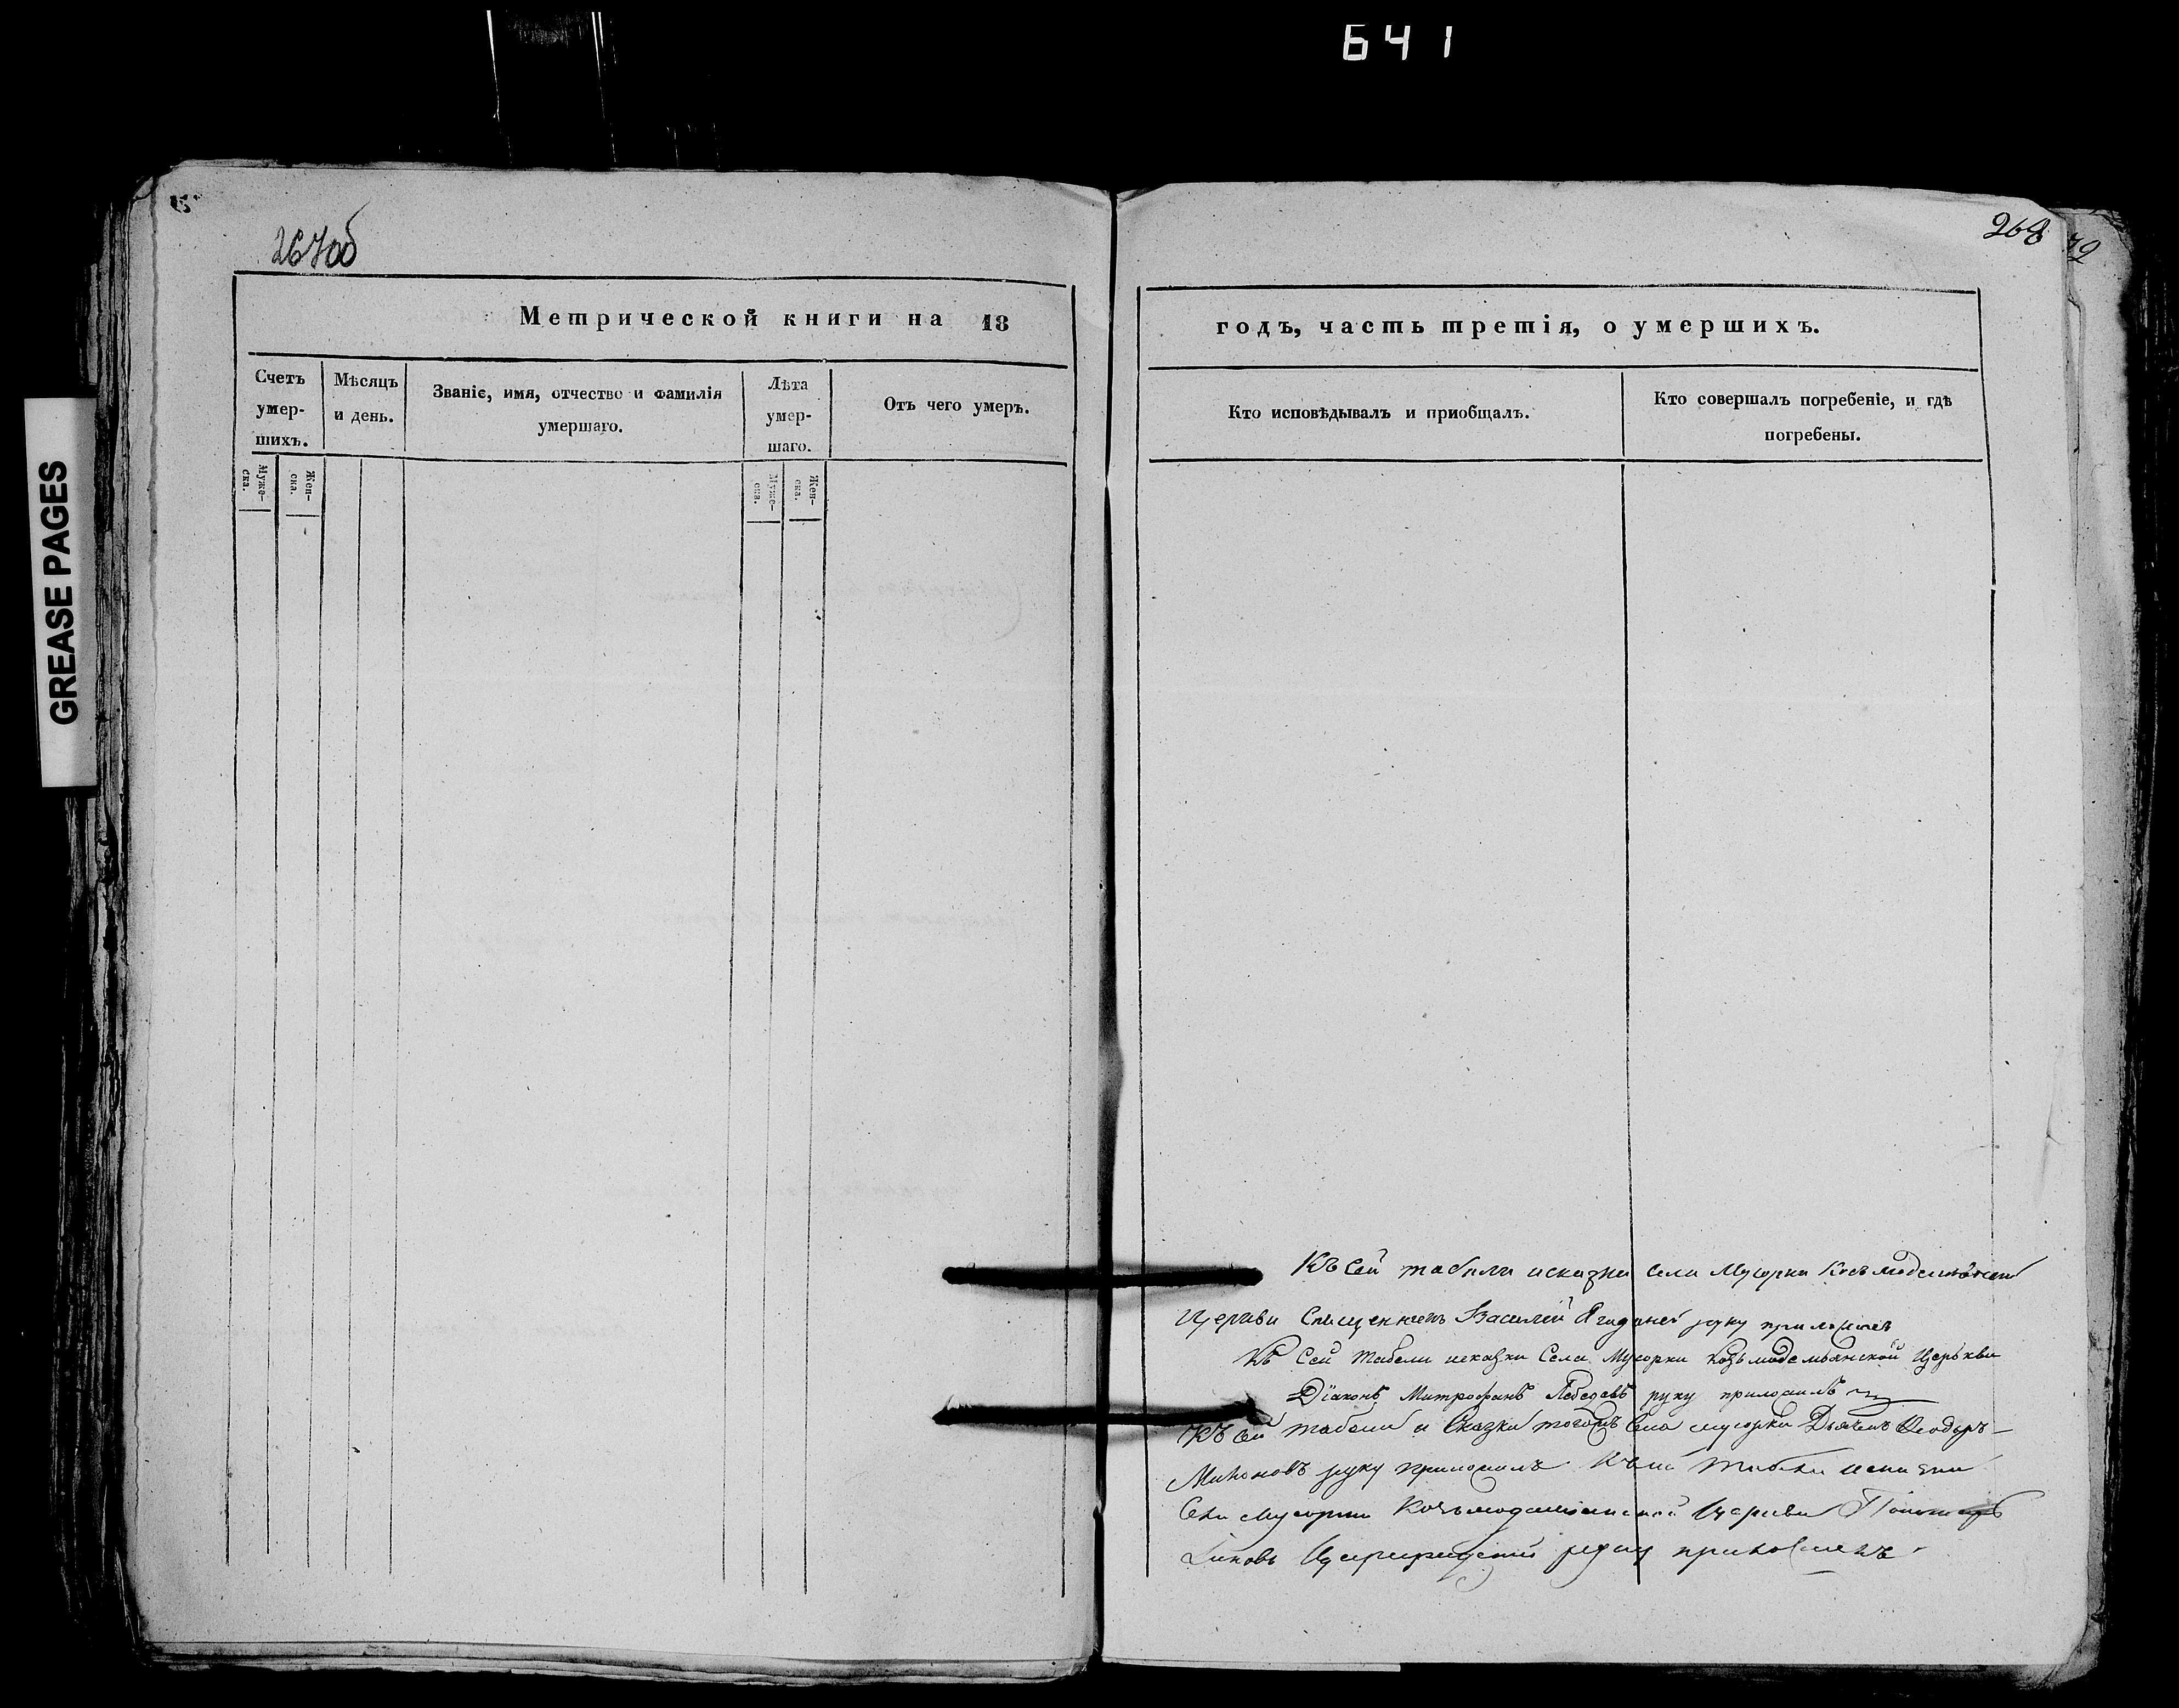 641
267об
268
79
GREASE PAGES
Метрической книги на 18
годъ, часть третія, о умершихъ.
Счетъ умер-шихъ.
Мѣсяцъ и день.
Званіе, имя, отчество и фамилія умершаго.
Лѣта умер-шаго.
Отъ чего умеръ.
Кто исповѣдывалъ и приобщалъ.
Кто совершалъ погребеніе, и гдѣ погребены.
Муже-ска.
Жен-ска.
Муже-ска.
Жен-ска.
Къ сей табели и сказки села Мусорки Козьмодемьянской
Церкви Священникъ Василий руку приложилъ
Къ Сей Табели и сказки Села Мусорки Козьмодемьянской Церькви
Діаконъ Митрофанъ Лебедевъ руку приложилъ
Къ сей табели и Сказки тогожъ Села мусорки Дьячекъ Феодоръ
руку приложилъ Къ сей табели и сказки
Села Мусорки Козьмодемьянской Церкви Пономарь
руку приложилъ